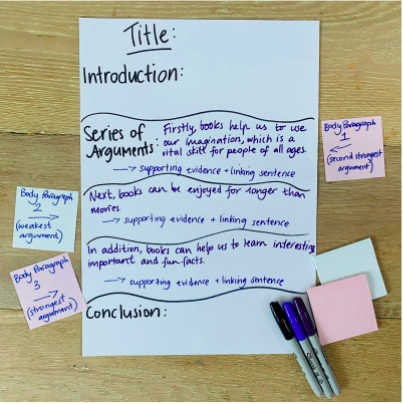 Title:
Introduction:
Series of
Arguments:
Firstly, books help us to use
our imagination, which is a
vital skill for people of all ages.
→ supporting evidence + linking sentence
Next, books can be enjoyed for longer than
movies.
→ supporting evidence + linking sentence
In addition, books can help us to learn interesting
important and fun facts.
→ supporting evidence + linking sentence
Conclusion:
Body Paragraph
1
←
(second strongest
argument)
Body Paragraph
2
→
(weakest
argument)
Body Paragraph
3
→
(strongest
argument)
Sharpie